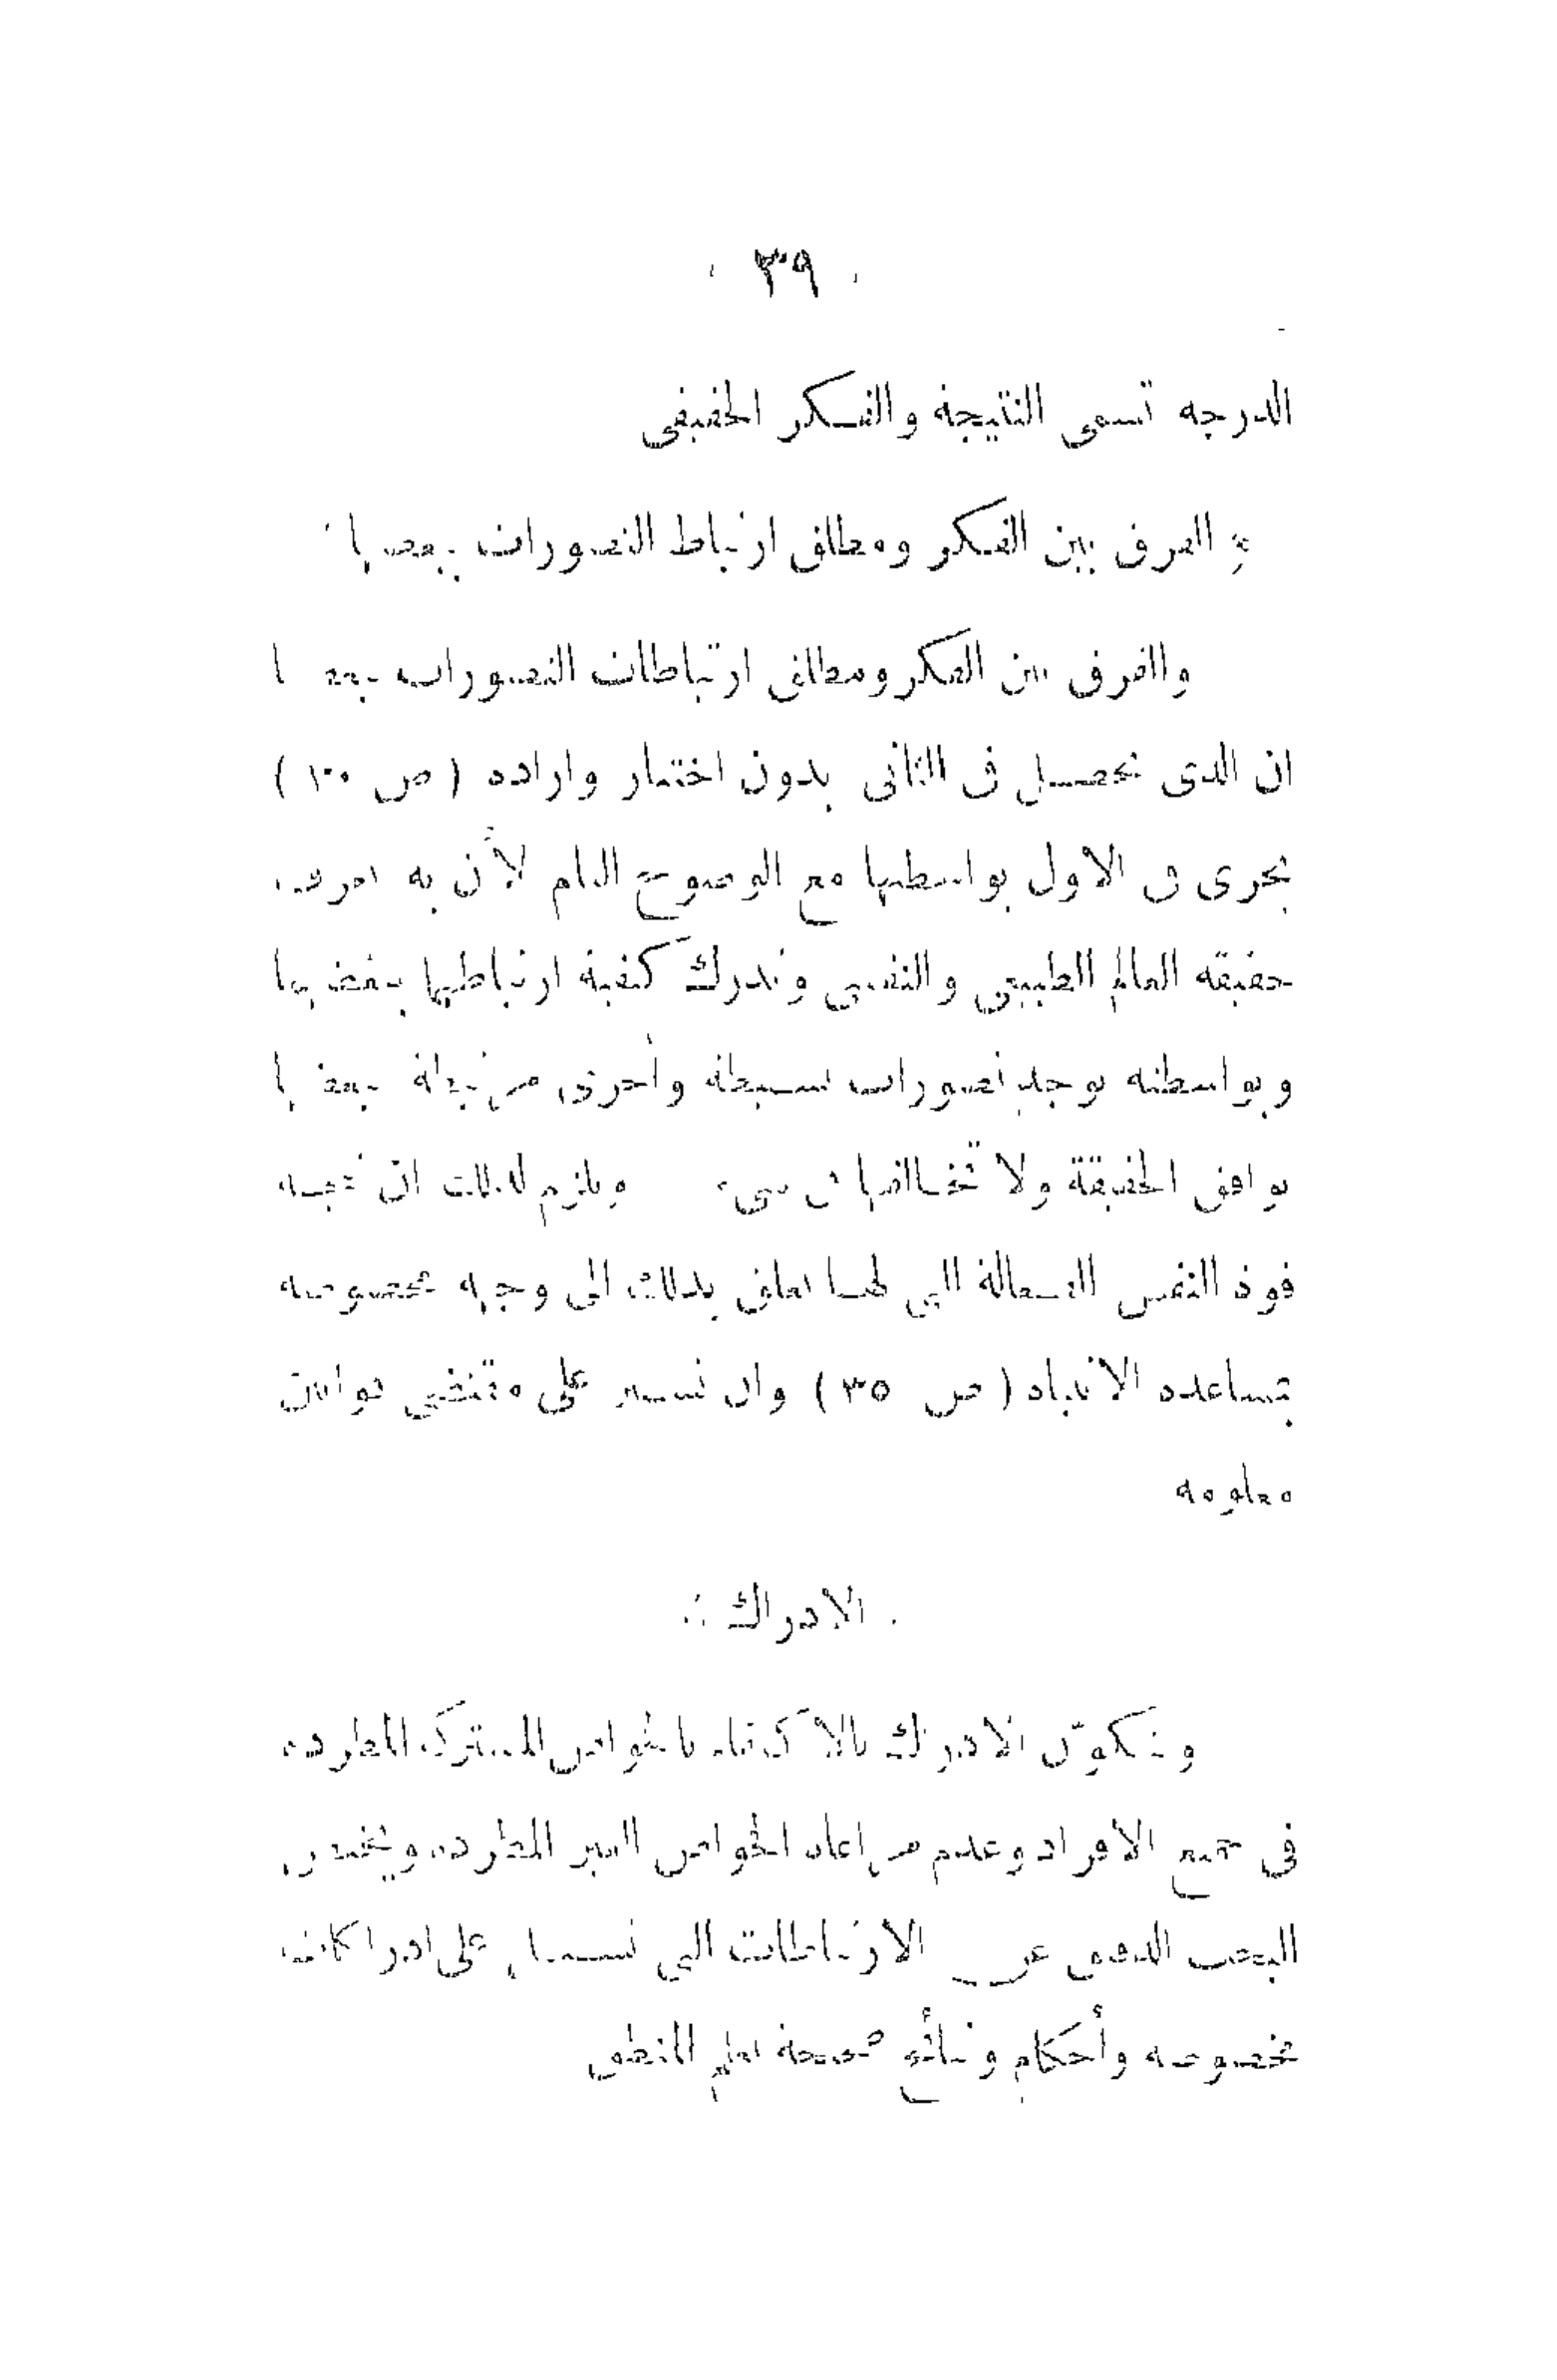 ٣٩
الدرجة تسمى النتيجة والفكر الحقيقى
الفرق بين الفكر ومطلق ارتباط التصورات ببعضها
والفرق بين الفكر ومطلق ارتباطات التصورات ببعضها
ان الذى يحصل فى الثانى بدون اختيار وارادة (ص ٢٠)
يجرى فى الاول بواسطتها مع الوضوح التام لأن به نعرف
حقيقة العالم الطبيعى والنفسى وندرك كيفية ارتباطها ببعضها
وبواسطته توجد تصورات بسيطة وأخرى مرتبطة ببعضها
توافق الحقيقة ولا تخالفها فى شىء ويلزم لذلك ان تتجه
قوة النفس الفعالة التى لها تعلق بذلك الى وجهة مخصوصة
بمساعدة الانتباه (ص ٣٥) وان تسير على مقتضى قوانين
معلومة
الادراك
ويتكوّن الادراك بالاكتفاء بالخواص المشتركة المطردة
فى جميع الافراد وعدم مراعاة الخواص الغير المطردة ويختص
البحث الدقيق عن الارتباطات التى على ادراكات
مخصوصة وأحكام ونتائج صحيحة بعلم المنطق